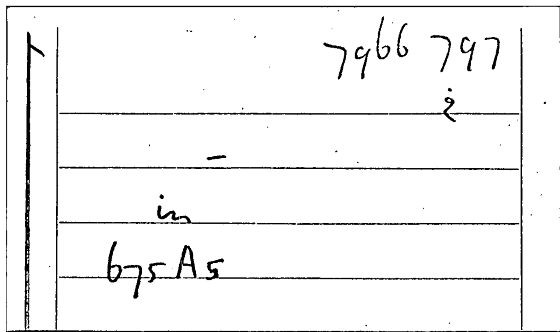 7966 797
in
675A5